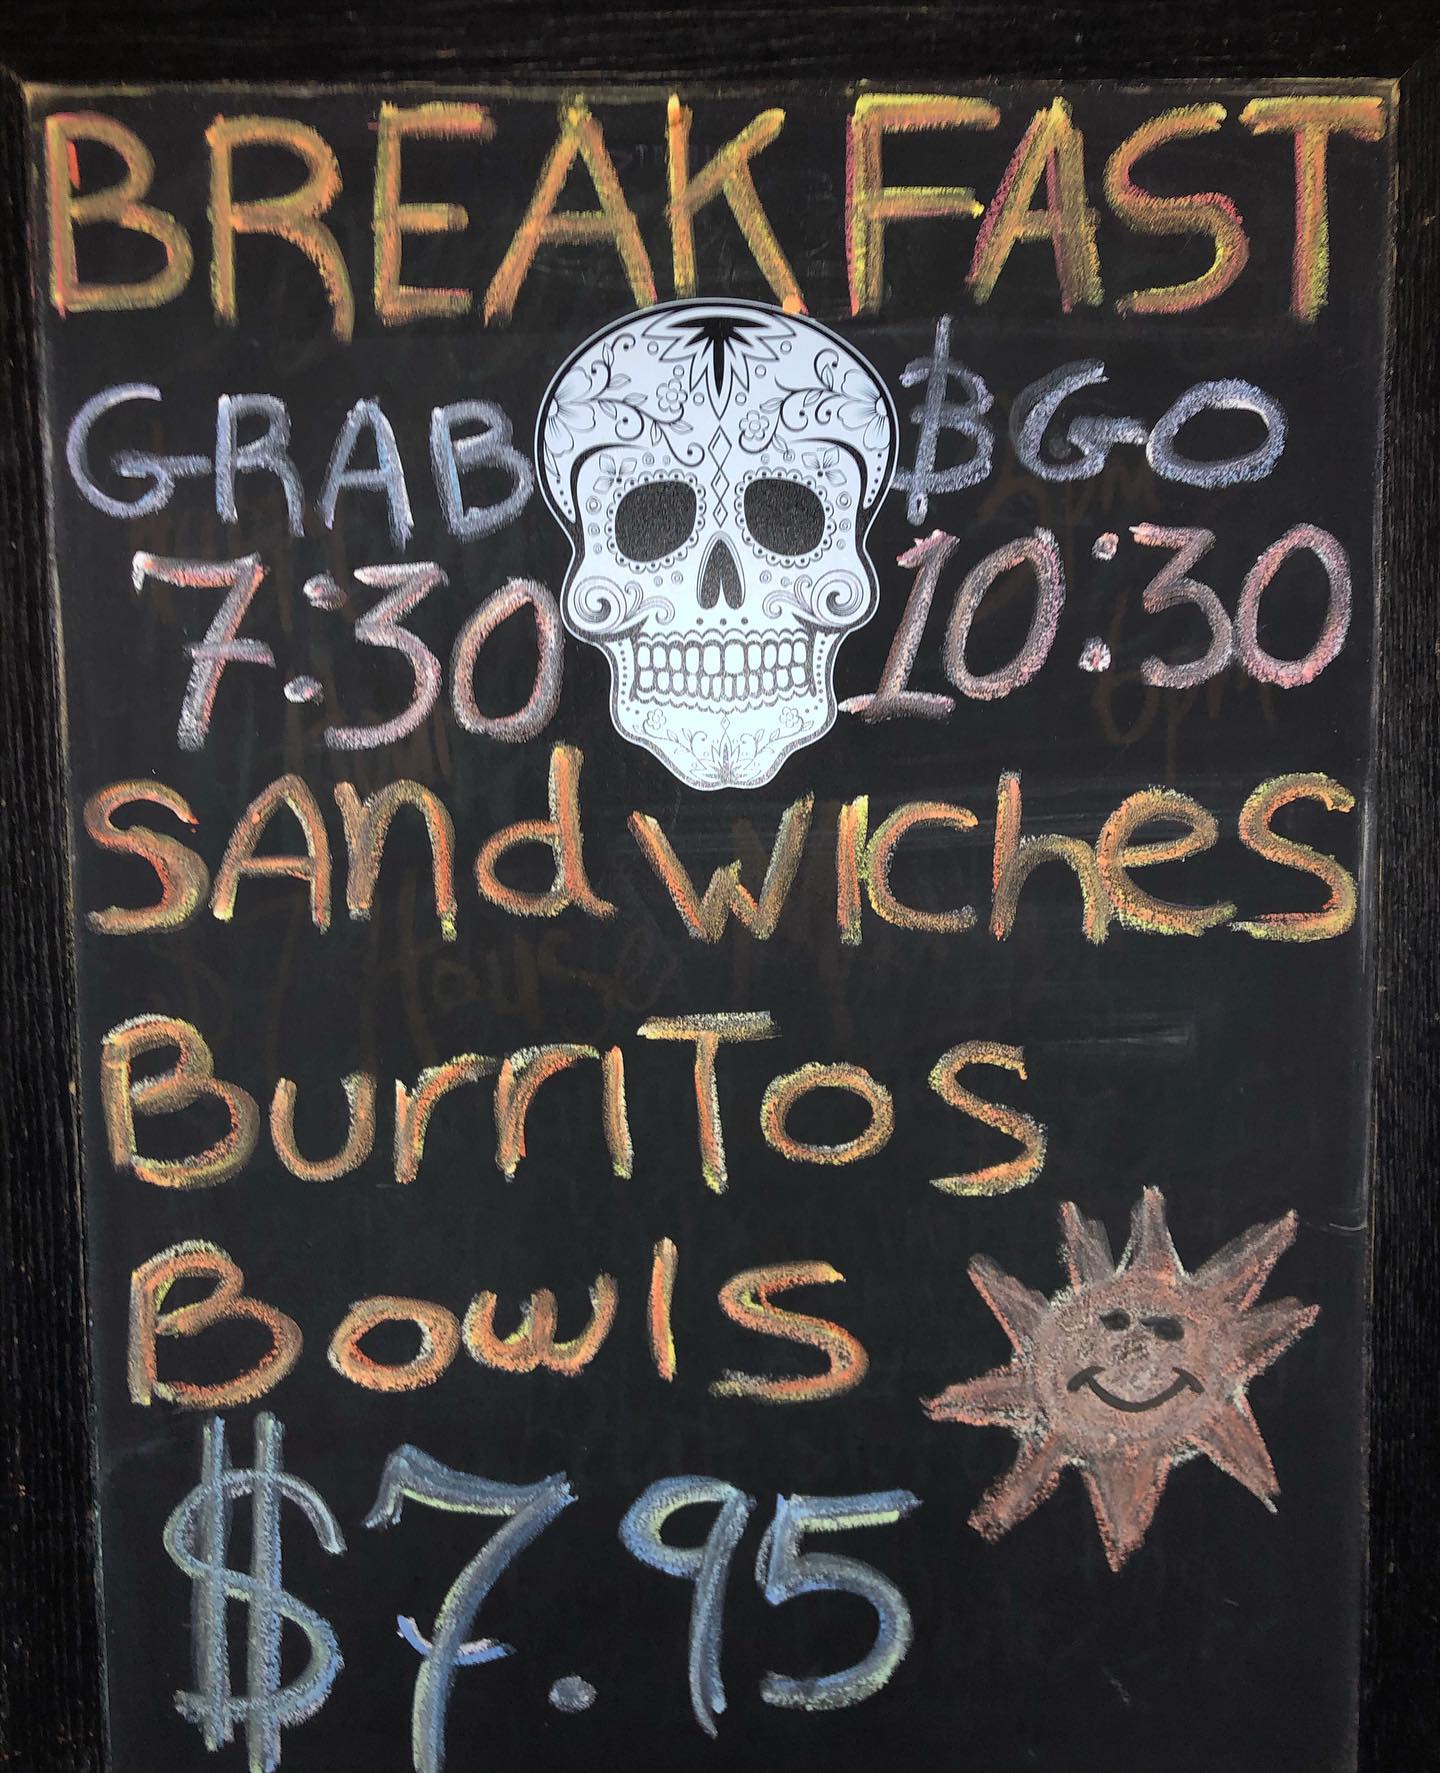 BREAKFAST
GRAB & GO
7:30 10:30
SAndwiches
BurriTos
Bowls
$7.95